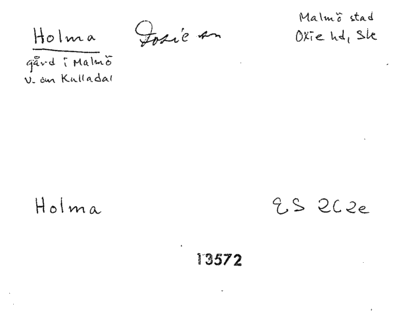 Holma
gård i Malmö
v. om Kulladal
Malmö stad
Oxie hd, Sk
Holma
ES 2C2e
13572